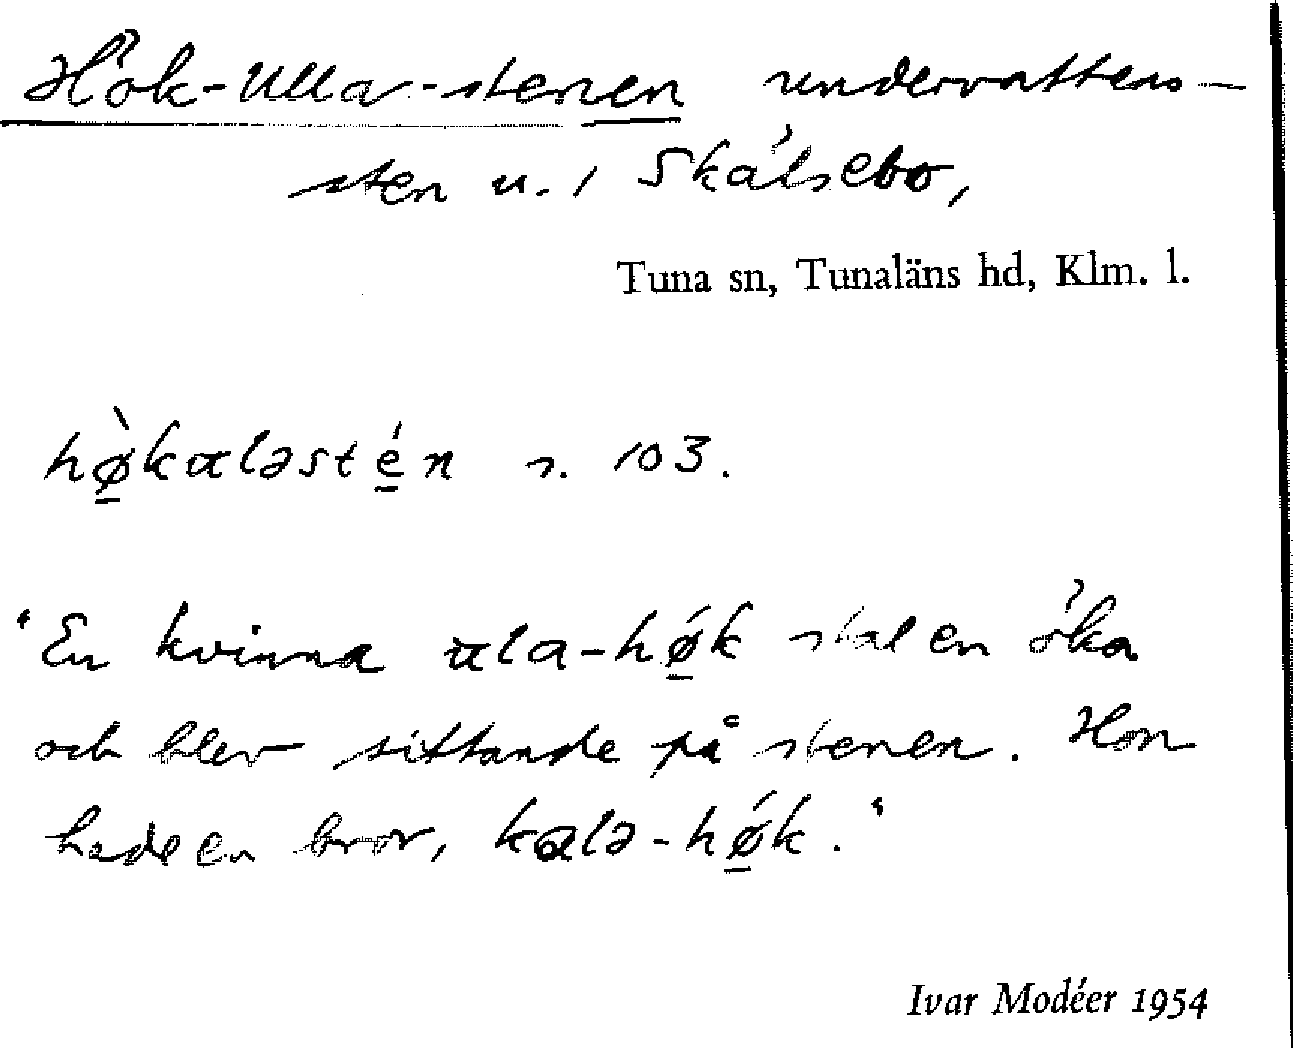 Hök-Ulla-stenen undervattens-
sten u. i Skälsebo,
Tuna sn, Tunaläns hd, Klm. l.
hø̀kaləstén s. 103.
"En kvinna ula-hǿk stal en öka
och blev sittande på stenen. Hon
hade en bror, kalə-hǿk."
Ivar Modéer 1954